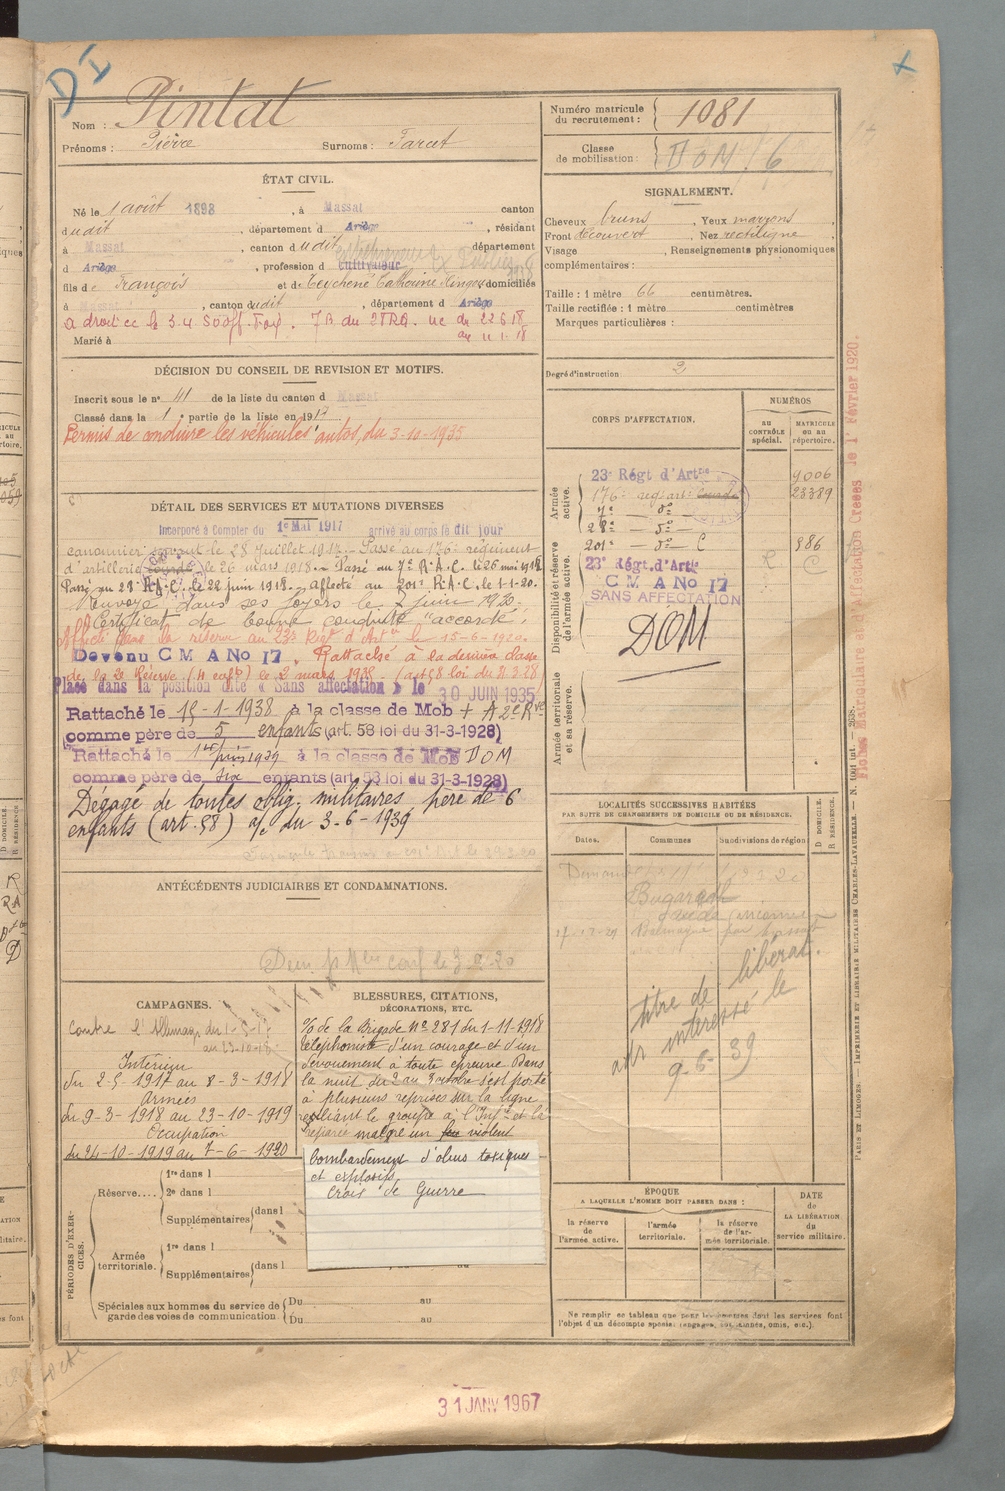 DI
Nom : Pintat
Prénoms : Pierre Surnoms : Tarcet
ÉTAT CIVIL.
Né le 1 août 1898, à Massat canton
dudit, département d Ariège, résidant
à Massat, canton dudit département
d Ariège, profession d cultivateur
fils de François et de domiciliés
à Massat, canton dudit, département d Ariège
Marié à
DÉCISION DU CONSEIL DE REVISION ET MOTIFS.
Inscrit sous le n° 41 de la liste du canton d Massat
Classé dans la 1e partie de la liste en 1917
Permis de conduire les véhicules autos, du 3-10-1935
DÉTAIL DES SERVICES ET MUTATIONS DIVERSES
Incorporé à Compter du 1er Mai 1917 arrivé au corps le dit jour
canonnier servant le 28 Juillet 1917. Passé au 176e régiment
d'artillerie lourde le 26 mars 1918. Passé au 7e R.A.C. le 26 mai 1918.
Passé au 28e R.A.C. le 22 juin 1918. affecté au 201e R.A.C. le 1-1-20.
Renvoyé dans ses foyers le 7 juin 1920.
Certificat de bonne conduite "accordé".
Affecté dans la réserve au 23e Régt d'Artie le 15-6-1920.
Devenu C M A No 17. Rattaché à la dernière classe
de la 2e Réserve (4 enfts) le 2 mars 1935 (art 58 loi du 31-3-28)
Placé dans la position dite « Sans affectation » le 30 JUIN 1935
Rattaché le 15-1-1938 à la classe de Mob
comme père de 5 enfants (art. 58 loi du 31-3-1928)
Rattaché le 1er juin 1939 à la classe de Mob DOM
comme père de six enfants (art. 58 loi du 31-3-1928)
Dégagé de toutes oblig. militaires père de 6
enfants (art. 58) a/c du 3-6-1939
ANTÉCÉDENTS JUDICIAIRES ET CONDAMNATIONS.
CAMPAGNES.
Contre l'Allemagne du 1-5-17
au 23-10-19
Intérieur
du 2-5 1917 au 8-3-1918
Armées
du 9-3-1918 au 23-10-1919
Occupation
du 24-10-1919 au 7-6-1920
BLESSURES, CITATIONS,
DÉCORATIONS, ETC.
% de la Brigade N° 281 du 1-11-1918
téléphoniste d'un courage et d'un
dévouement à toute épreuve. Dans
la nuit du 2 au 3 octobre s'est porté
à plusieurs reprises sur la ligne
reliant le groupe à l'Infie et l'a
réparée malgré un feu violent
bombardement d'obus toxiques
et explosifs
Croix de Guerre
PÉRIODES D'EXERCICES.
Réserve....
1re dans l
2e dans l
Supplémentaires dans l
Armée territoriale.
1re dans l
Supplémentaires dans l
Spéciales aux hommes du service de garde des voies de communication
Du au
Du au
Numéro matricule du recrutement : 1081
Classe de mobilisation : DOM / 6
SIGNALEMENT.
Cheveux bruns, Yeux marrons,
Front découvert, Nez rectiligne,
Visage , Renseignements physionomiques
complémentaires :
Taille : 1 mètre 66 centimètres.
Taille rectifiée : 1 mètre centimètres
Marques particulières :
Degré d'instruction 2
CORPS D'AFFECTATION.
NUMÉROS
AU CONTRÔLE spécial.
MATRICULE ou au répertoire.
Armée active.
23e Régt d'Artie 9006
176e rég art lourde 23389
7e do
28e do
201e do C 886
Disponibilité et réserve de l'armée active.
23e Régt. d'Artie R C
C M A No 17
SANS AFFECTATION
DOM
Armée territoriale et sa réserve.
LOCALITÉS SUCCESSIVES HABITÉES
PAR SUITE DE CHANGEMENTS DE DOMICILE OU DE RÉSIDENCE.
Dates. Communes Subdivisions de région D DOMICILE. R RÉSIDENCE.
Bugarach
titre de libérat.
adr intéressé le
9-6-39
ÉPOQUE
A LAQUELLE L'HOMME DOIT PASSER DANS :
la réserve de l'armée active.
l'armée territoriale.
la réserve de l'armée territoriale.
DATE DE LA LIBÉRATION du service militaire.
Ne remplir ce tableau que pour les hommes dont les services font
l'objet d'un décompte spécial (engagés, ajournés, omis, etc.).
Fiches Matriculaire et d'Affectation Créées le 1er Février 1920.
PARIS ET LIMOGES. — IMPRIMERIE ET LIBRAIRIE MILITAIRES CHARLES-LAVAUZELLE.
31 JANV 1967